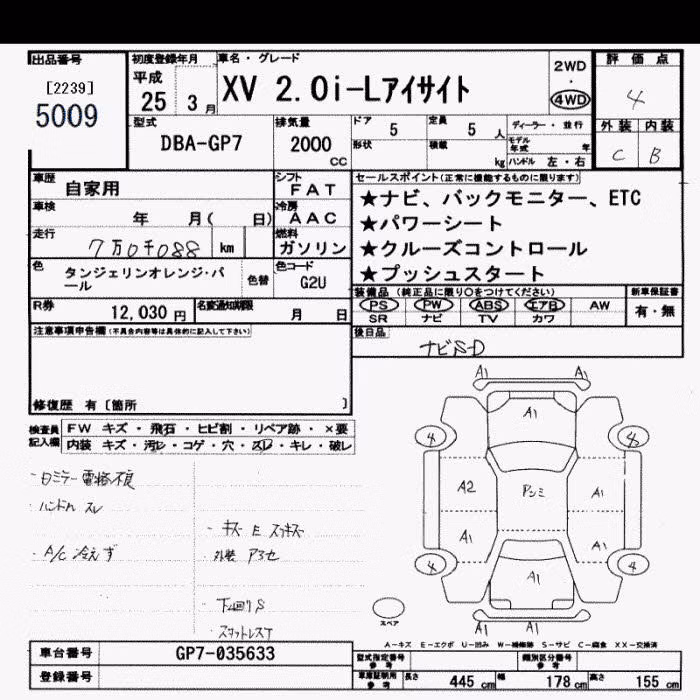 出品番号
[2239]
5009
初度登録年月
平成
25 3 月
車名・グレード
XV 2.0i-Lアイサイト
2WD
・
4WD
評価点
4
外装 内装
C B
型式
DBA-GP7
排気量
2000
cc
ドア 5
定員 5 人
形状
積載 kg
ディーラー・並行
モデル年式 年
ハンドル 左・右
車歴
自家用
シフト
FAT
車検
年 月( 日)
冷房
AAC
走行
7万0千088 km
燃料
ガソリン
色
タンジェリンオレンジ・パール
色替
色コード
G2U
R券
12,030 円
名変通知期限
月 日
セールスポイント(正常に機能するものに限ります)
★ナビ、バックモニター、ETC
★パワーシート
★クルーズコントロール
★プッシュスタート
装備品(純正品に限り○をつけてください)
PS PW ABS エアB AW
SR ナビ TV カワ
新車保証書
有・無
後日品
ナビSD
注意事項申告欄(不具合内容等は具体的に記入して下さい)
修復歴 有〔箇所 〕
検査員記入欄
FW キズ・飛石・ヒビ割・リペア跡・×要
内装 キズ・汚レ・コゲ・穴・スレ・キレ・破レ
・ハンドル スレ
・A/C 冷えず
・キズ E
・外装
・下廻りS
A1 A1
A1
4 4
A2 A1
A1 A1
4 4
A1
A1 A1
スペア
A−キズ E−エクボ U−凹み W−補修跡 S−サビ C−腐食 XX−交換済
車台番号
GP7-035633
登録番号
型式指定番号
参考
類別区分番号
参考
車庫証明用
参考
長さ 445 cm 幅 178 cm 高さ 155 cm